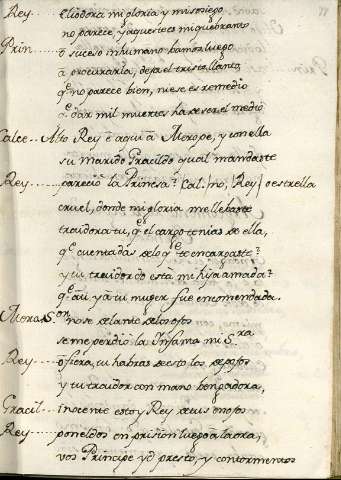 Rey.... Eliodora mi gloria y mi sosiego
no parece, y aqueste es mi quebranto
Prin.... o suceso inhumano bamos luego
a procurarla, dexa el triste llanto,
q̃ no parece bien, ni ese es remedio
q̃ dar mil muertes ha de ser el medio
Calce... Alto Rey e aqui a Merope, y con ella
su marido Gracildo qual mandaste
Rey.... parecio la Prinsesa? Cal./no, Rey/ o estrella
cruel, donde mi gloria me llebaste
traidora tu, q̃ el cargo tenias de ella,
q̃ cuenta das de lo q̃ te encargaste?
y tu traidor do está mi hija amada?
q̃ a ti y a tu muger fue encomendada.
Merop. Sor. no se delante de los ojos
se me perdió la Infanta mi Sra.
Rey.... o fiera, tu habras de esto los despojos
y tu traidor con mano bengadora,
Gracil... inocente estoy Rey de tus enojos
Rey.... poneldos en prision luego a la ora,
vos Principe yd presto, y con tormentos